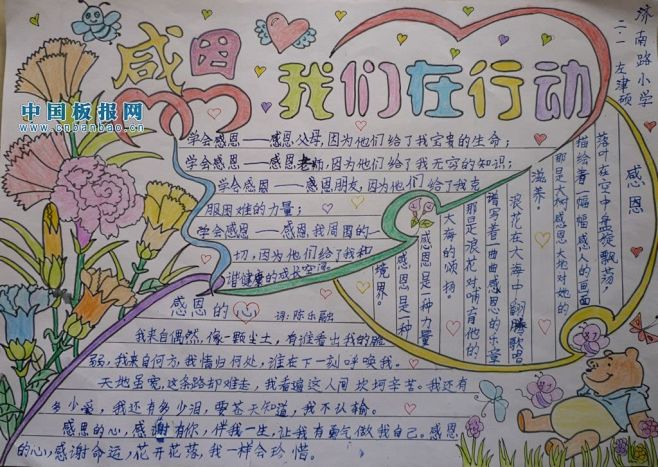 感恩
我们在行动
中国板报网
www.cnbanbao.cn
济南路小学
二.1 左津硕
学会感恩——感恩父母,因为他们给了我宝贵的生命;
学会感恩——感恩老师,因为他们给了我无穷的知识;
学会感恩——感恩朋友,因为他们给了我克
服困难的力量;
学会感恩——感恩我周围的一
切,因为他们给了我和
谐健康的成长空间。
感恩
落叶在空中盘旋飘荡
描绘着一幅幅感人的画面
那是大树感恩大地对她的
滋养。
浪花在大海中翻腾歌唱
谱写着一曲曲感恩的乐章
那是浪花对哺育他的
大海的颂扬。
感恩是一种力量
感恩是一种
境界。
感恩的心
词:陈乐融
我来自偶然,像一颗尘土,有谁看出我的脆
弱,我来自何方,我情归何处,谁在下一刻呼唤我。
天地虽宽,这条路却难走,我看遍这人间坎坷辛苦。我还有
多少爱,我还有多少泪,要苍天知道,我不认输。
感恩的心,感谢有你,伴我一生,让我有勇气做我自己。感恩
的心,感谢命运,花开花落,我一样会珍惜。